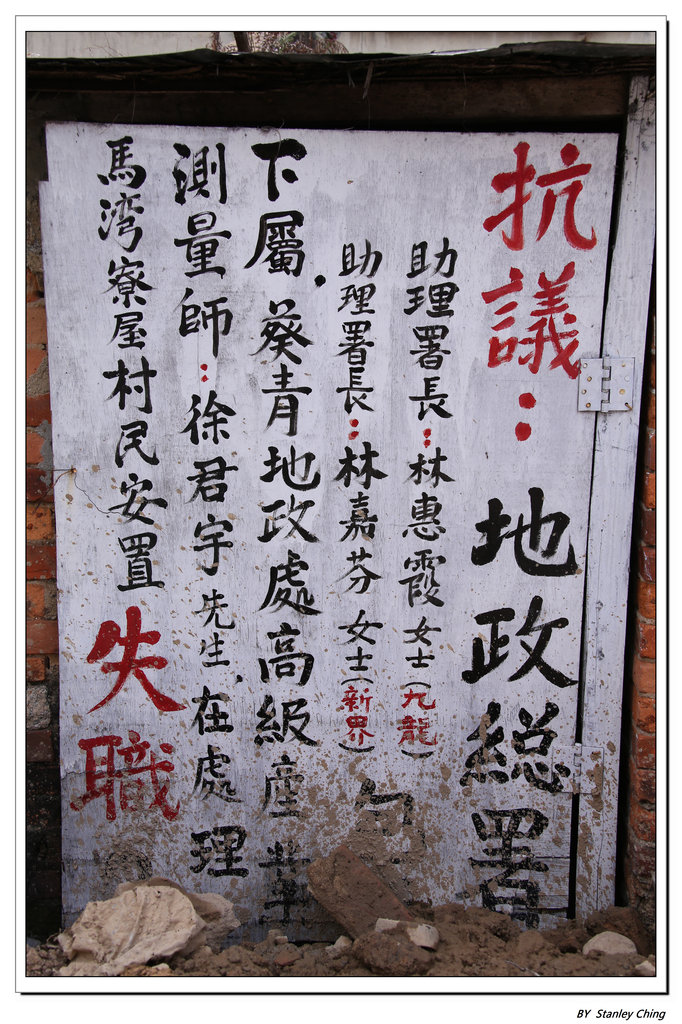 抗議：地政総署
助理署長：林惠霞女士(九龍)
助理署長：林嘉芬女士(新界)
包
下屬，葵青地政處高級產業
測量師：徐君宇先生，在處理
馬湾寮屋村民安置失職
BY Stanley Ching